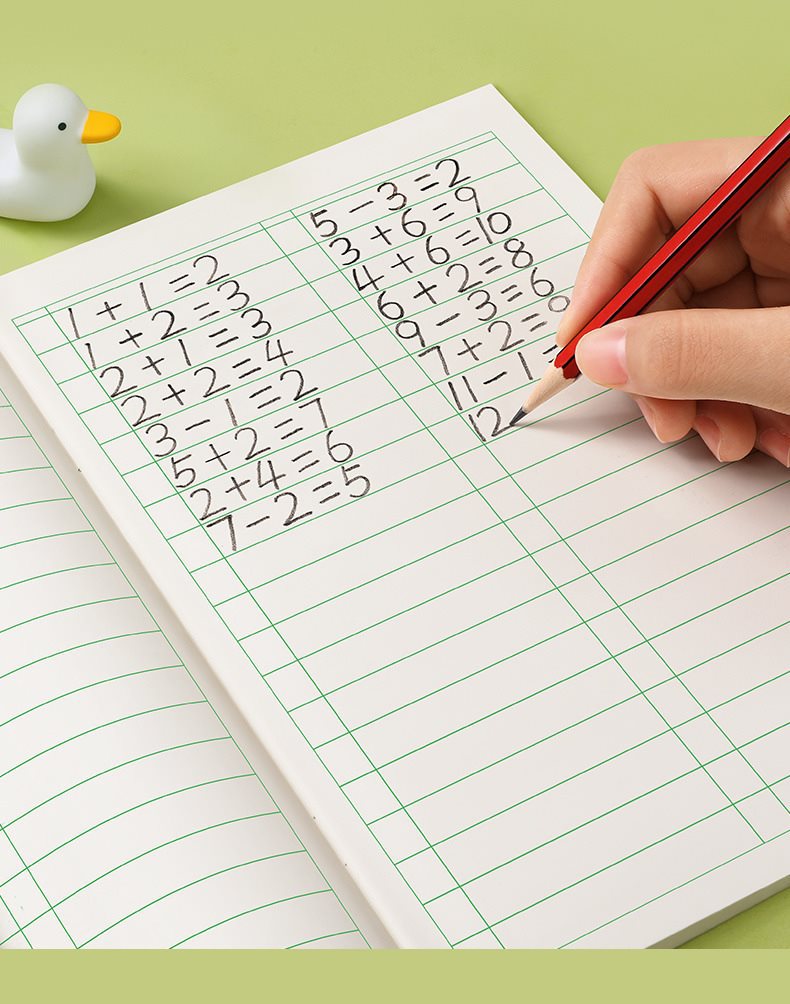 1 + 1 = 2
1 + 2 = 3
2 + 1 = 3
2 + 2 = 4
3 - 1 = 2
5 + 2 = 7
2 + 4 = 6
7 - 2 = 5
5 - 3 = 2
3 + 6 = 9
4 + 6 = 10
6 + 2 = 8
9 - 3 = 6
7 + 2 =
11 - 1 =
12